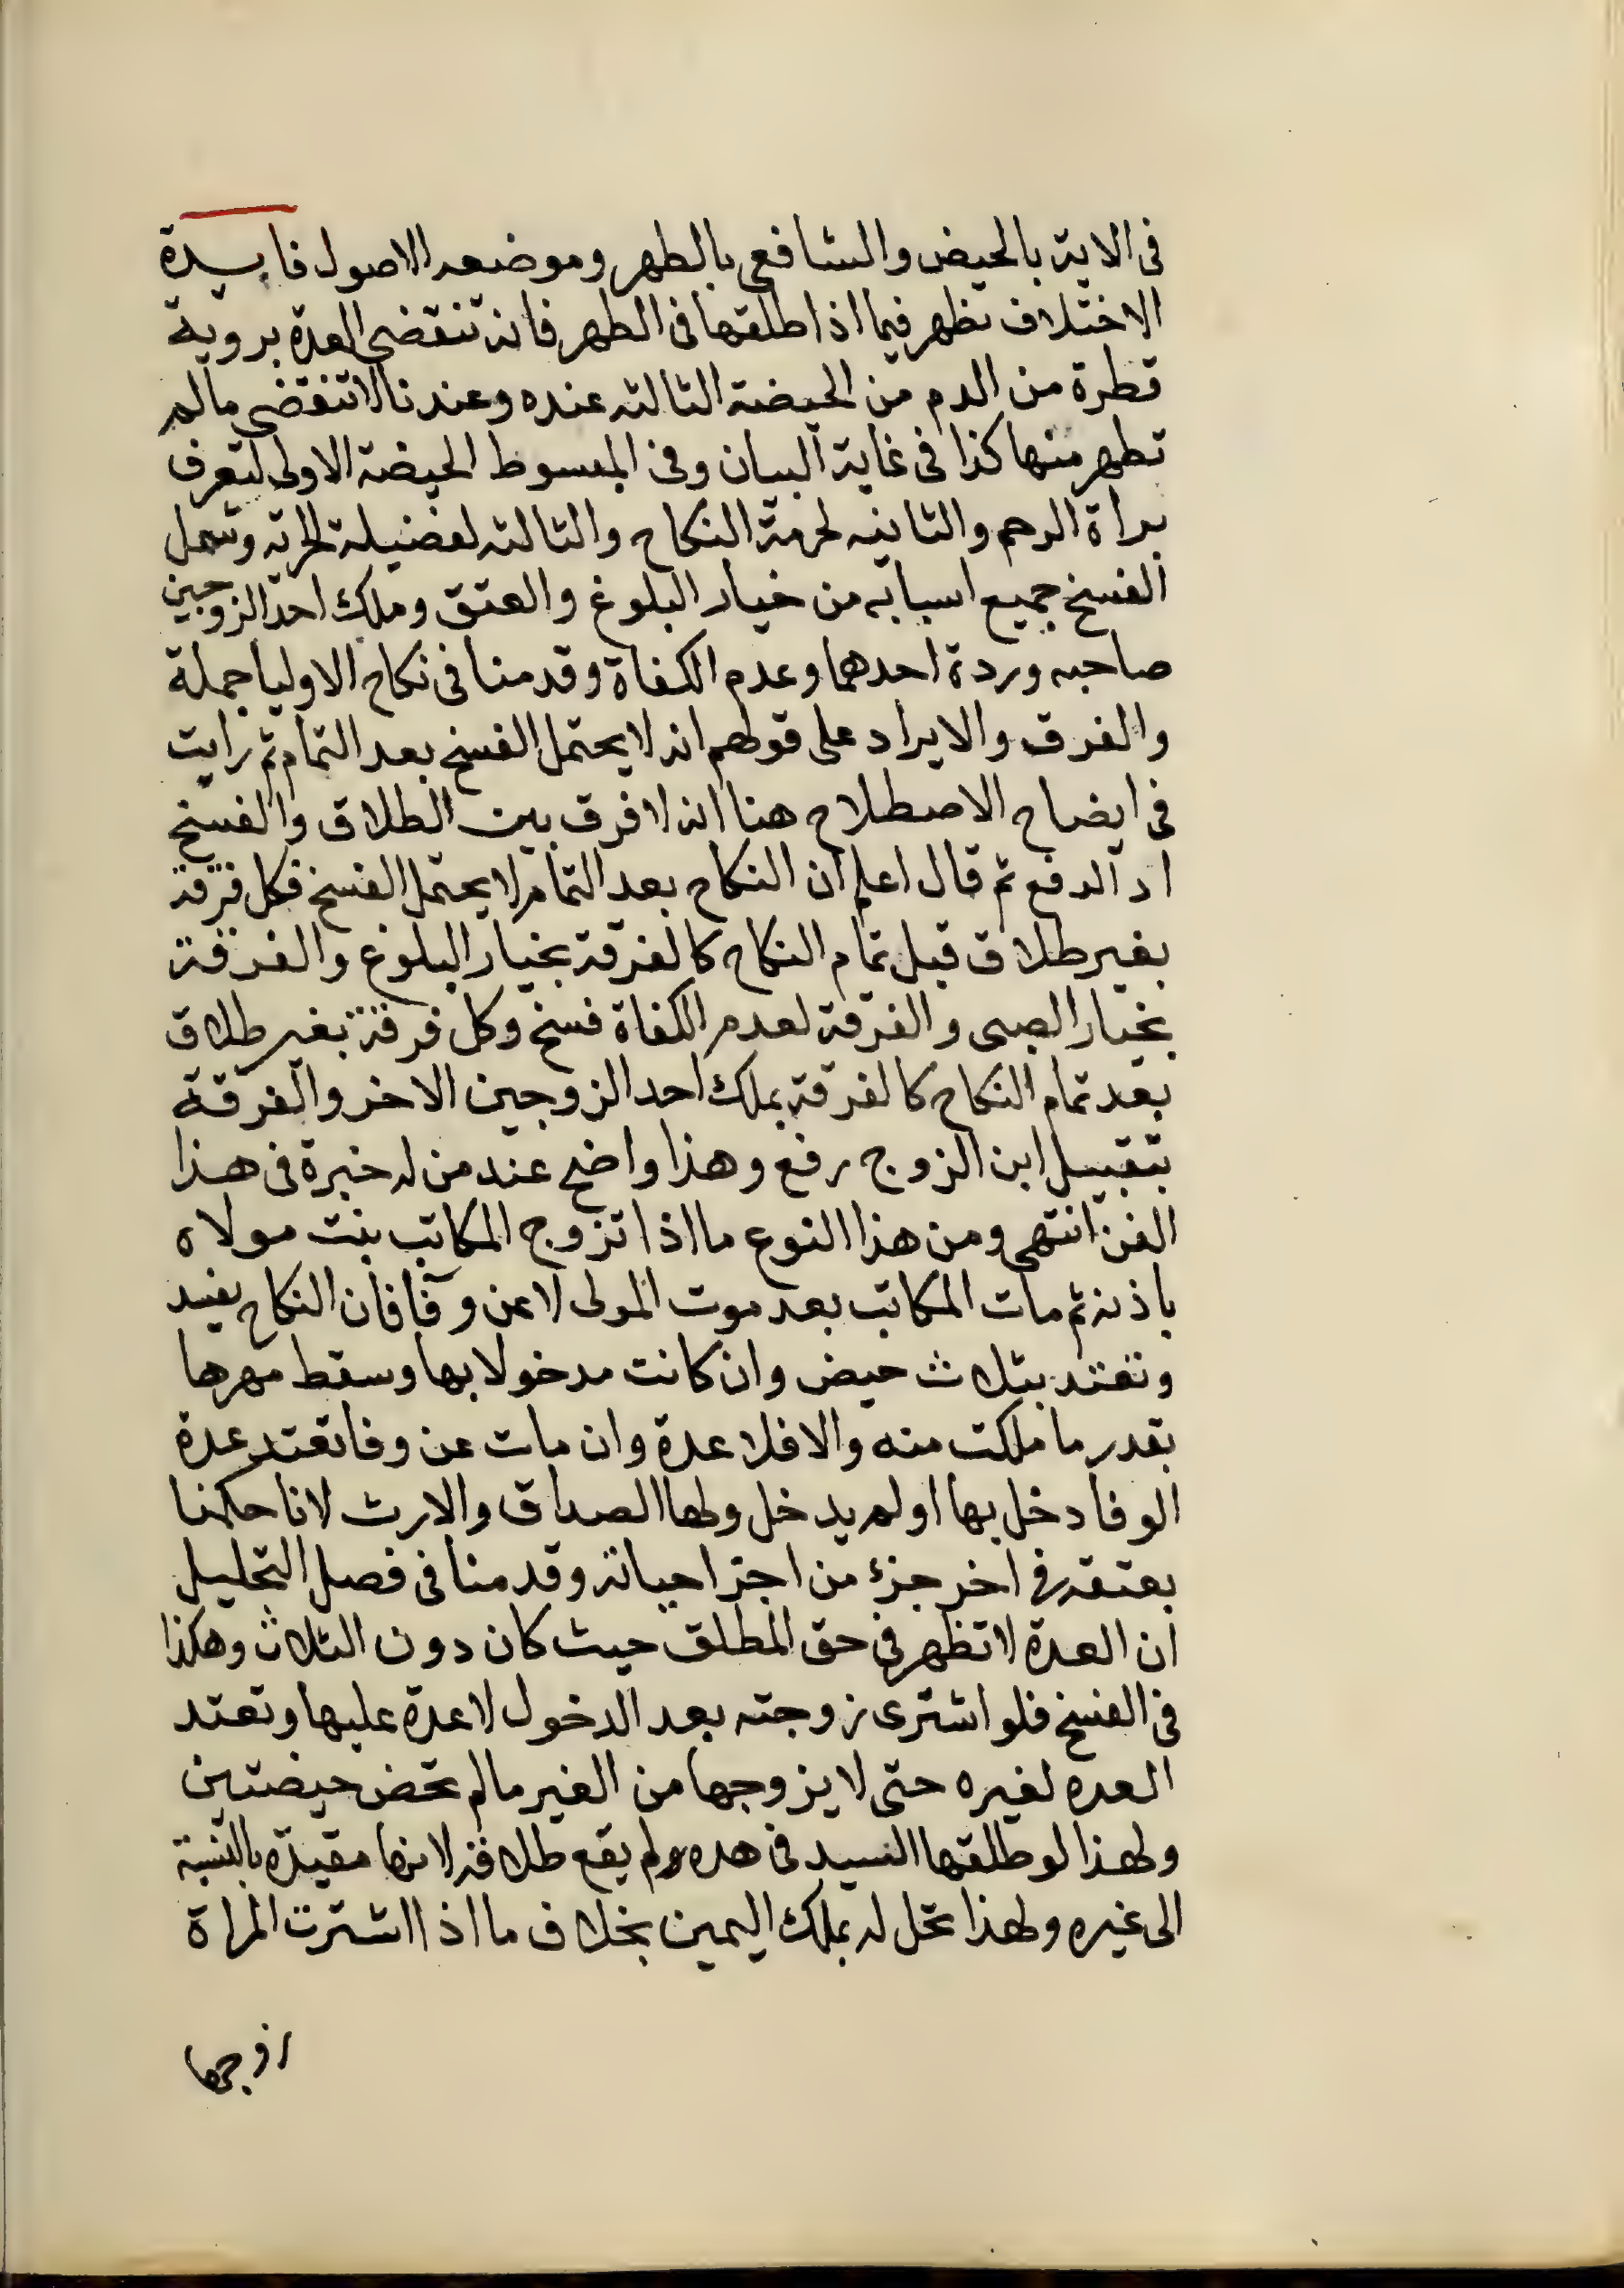 فى الاية بالحيض والشافعي بالطهر وموضعه الاصول فايدة
الاختلاف تظهر فيما اذا طلقها فى الطهر فانه تنقضي العدة بروية
قطرة من الدم من الحيضة الثالثه عنده وعندنا لا تنقضى مالم
تطهر منها كذا فى غاية البيان وفى المبسوط الحيضة الاولى لتعرف
براة الرحم والثانيه لحرمة النكاح والثالثه لفضيلة الحرية وشمل
الفسخ جميع اسبابه من خيار البلوغ والعتق وملك احد الزوجين
صاحبه وردة احدهما وعدم الكفاة وقدمنا فى نكاح الاوليا جملة
والفرق والايراد على قولهم انه لا يحتمل الفسخ بعد التمام ثم رايت
فى ايضاح الاصطلاح هنا انه لا فرق بين الطلاق والفسخ
اد الدفع ثم قال اعلم ان النكاح بعد التمام لا يحتمل الفسخ فكل فرقة
بغير طلاق قبل تمام النكاح كالفرقة بخيار البلوغ والفرقة
بخيار الصبى والفرقة لعدم الكفاة فسخ وكل فرقة بغير طلاق
بعد تمام النكاح كالفرقة بملك احد الزوجين الاخر والفرقة
بتقبيل ابن الزوج رفع وهذا واضح عند من له خبرة فى هذا
الفن انتهى ومن هذا النوع ما اذا تزوج المكاتب بنت مولاه
باذنه ثم مات المكاتب بعد موت المولى لا عن وفا فان النكاح يفسد
وتعتد بثلاث حيض وان كانت مدخولا بها وسقط مهرها
بقدر ما ملكت منه والا فلا عدة وان مات عن وفا تعتد عدة
الوفا دخل بها او لم يدخل ولها الصداق والارث لانا حكمنا
بعتقه فى اخر جزء من اجزا حياته وقدمنا فى فصل التحليل
ان العدة لا تظهر فى حق المطلق حيث كان دون الثلاث وهكذا
فى الفسخ فلو اشترى زوجته بعد الدخول لا عدة عليها وتعتد
العده لغيره حتى لا يزوجها من الغير مالم تحض حيضتين
ولهذا لو طلقها السيد فى هده لم يقع طلاقه لانها مقيدة بالنسبة
الى غيره ولهذا تحل له بملك اليمين بخلاف ما اذا اشترت المراة
زوجها